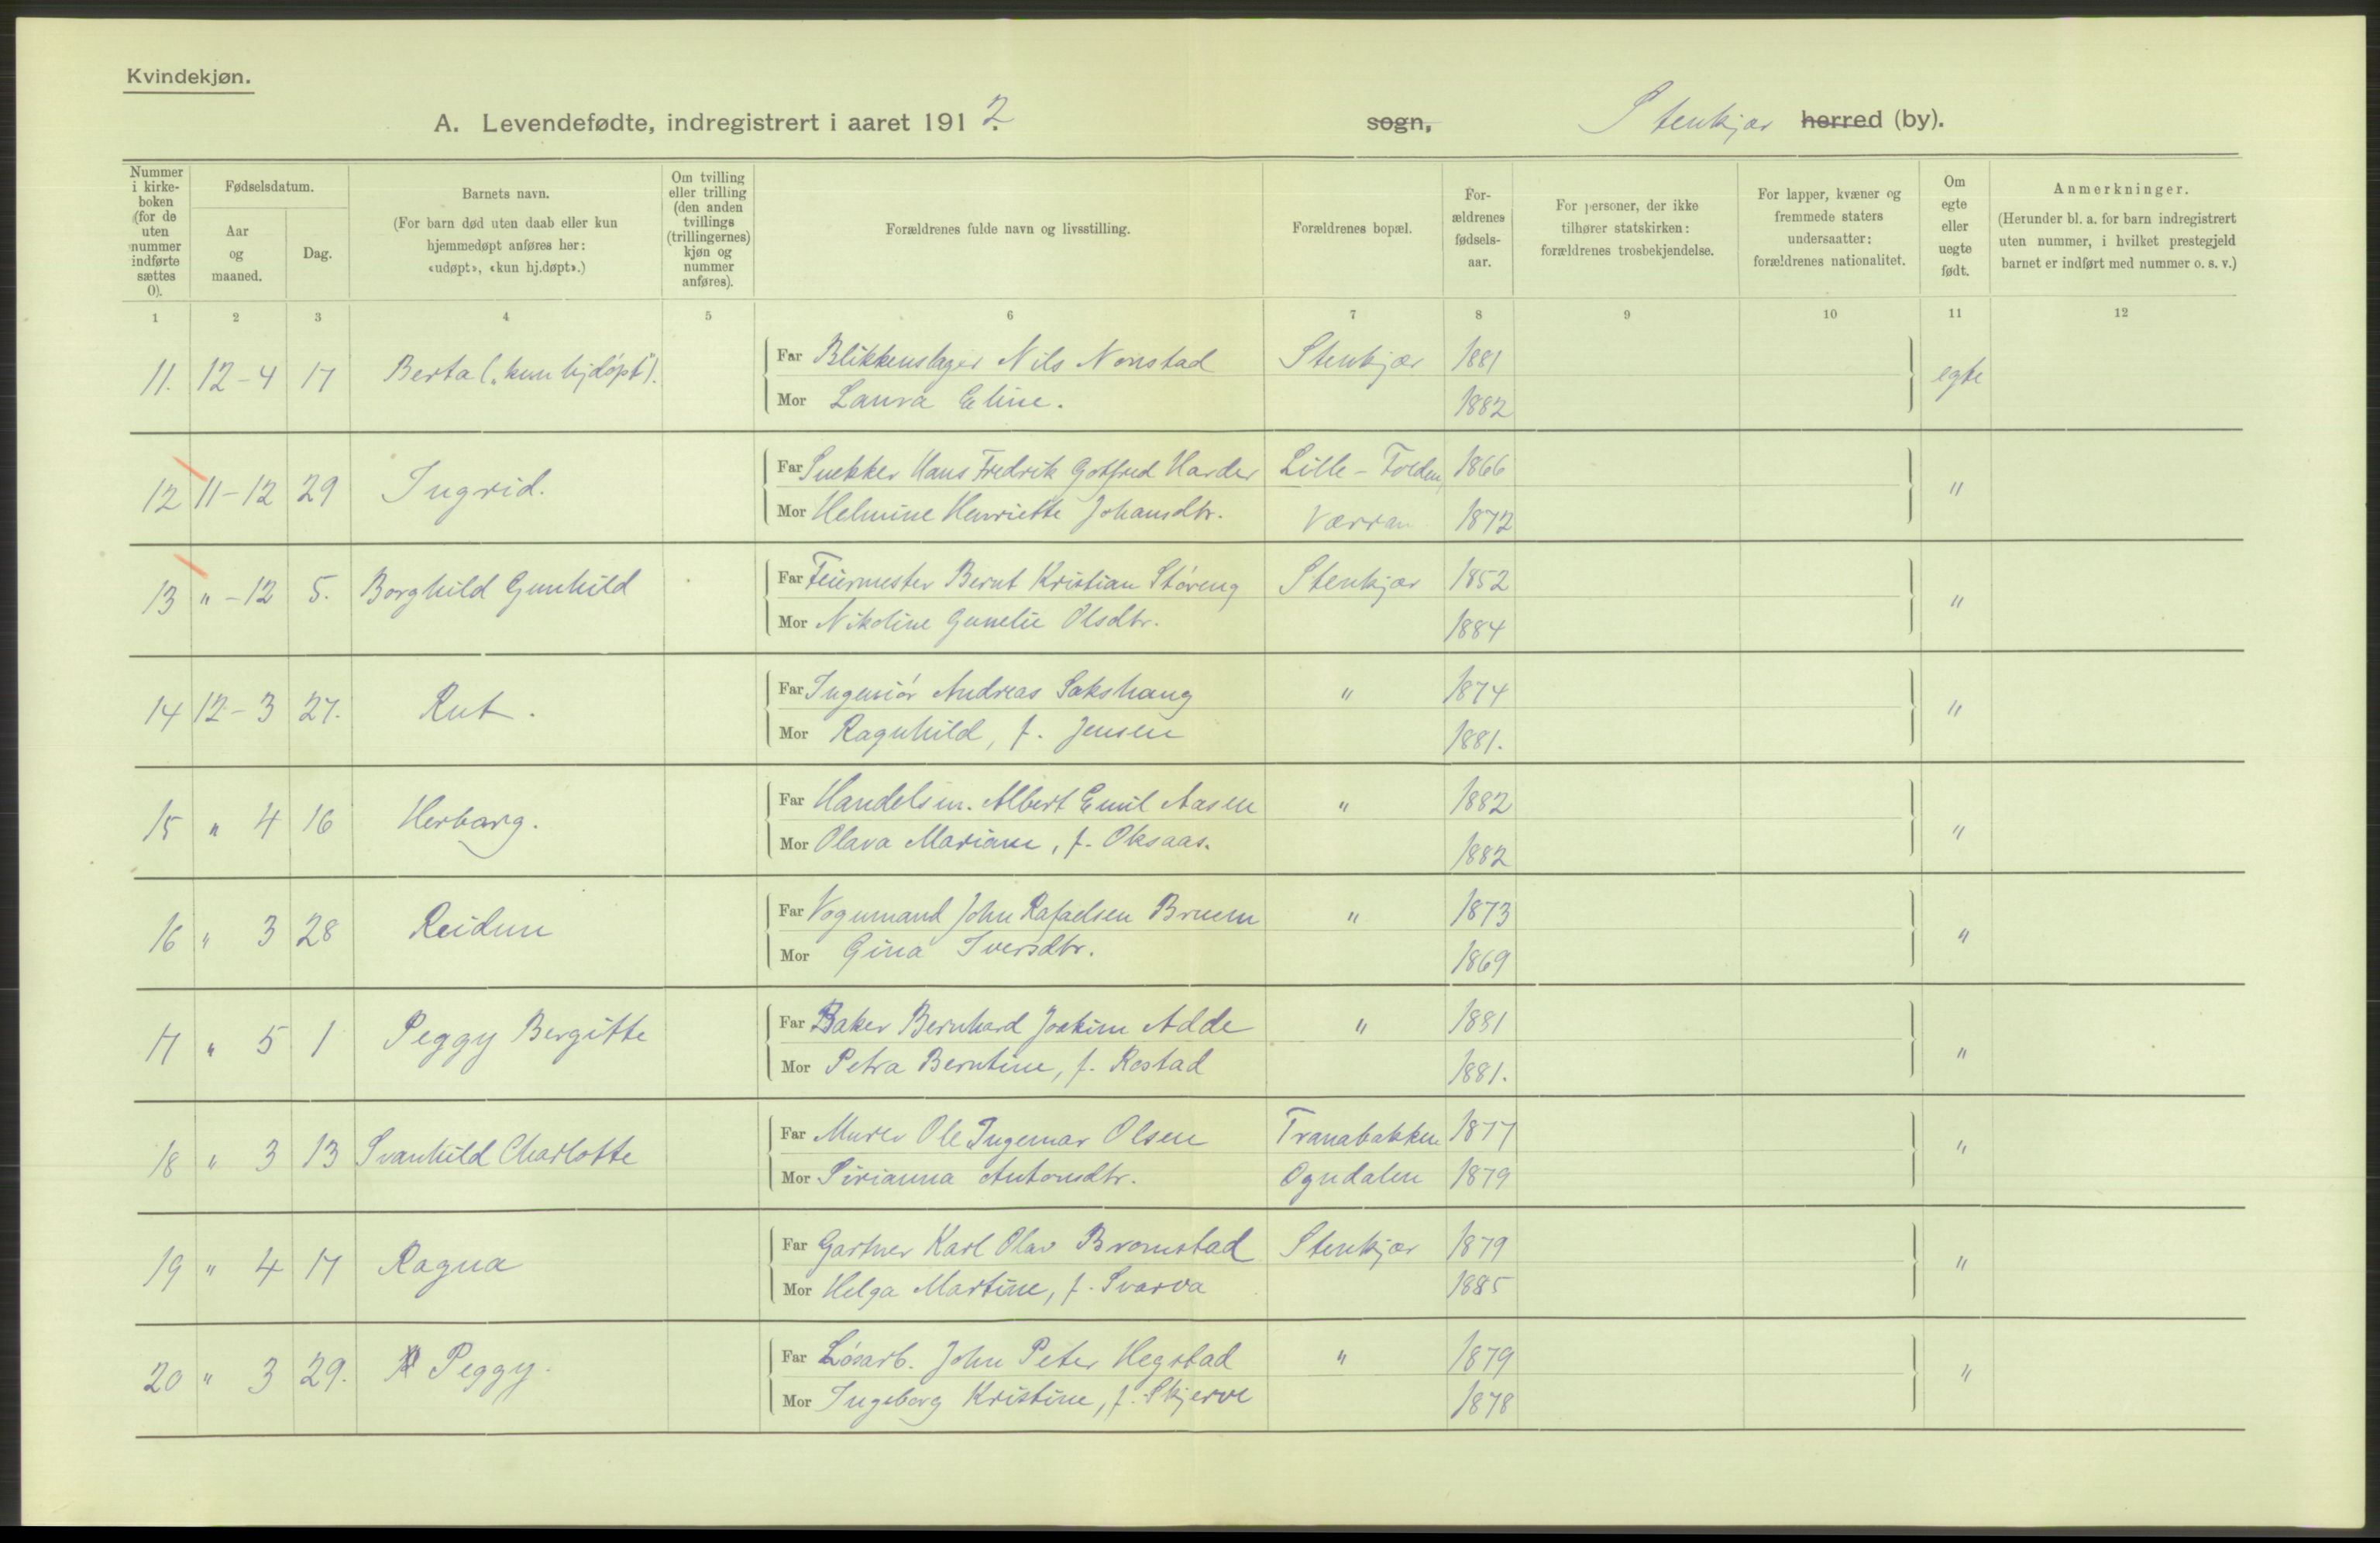 Kvindekjøn.
A. Levendefødte, indregistrert i aaret 1912. sogn, Stenkjær herred (by).
Nummer i kirke-boken (for de uten nummer indførte sættes 0).
Fødselsdatum.
Aar og maaned.
Dag.
Barnets navn.
(For barn død uten daab eller kun hjemmedøpt anføres her: «udøpt», «kun hj.døpt».)
Om tvilling eller trilling (den anden tvillings (trillingernes) kjøn og nummer anføres).
Forældrenes fulde navn og livsstilling.
Forældrenes bopæl.
For-ældrenes fødsels-aar.
For personer, der ikke tilhører statskirken: forældrenes trosbekjendelse.
For lapper, kvæner og fremmede staters undersaatter: forældrenes nationalitet.
Om egte eller uegte født.
Anmerkninger.
(Herunder bl. a. for barn indregistrert uten nummer, i hvilket prestegjeld barnet er indført med nummer o. s. v.)
1 2 3 4 5 6 7 8 9 10 11 12
11. 12-4 17 Berta („kun hjdøpt"). Far Blikkenslager Nils Nonstad Stenkjær 1881 egte
Mor Laura Eline. 1882
12 11-12 29 Ingrid. Far Snekker Hans Fredrik Gotfred Harder Lille-Tolden, 1866 "
Mor Helmine Henriette Johansdtr. Værran 1872
13 " -12 5. Borghild Gunhild Far Feiermester Bernt Kristian Støreng Stenkjær 1852 "
Mor Nikoline Gunelie Olsdtr. 1884
14 12-3 27. Rut. Far Ingeniør Andreas Sakshaug " 1874 "
Mor Ragnhild, f. Jensen 1881.
15 " 4 16 Herbarg. Far Handelsm. Albert Emil Aasen " 1882 "
Mor Olava Mariane, f. Oksaas. 1882
16 " 3 28 Reidun Far Vognmand John Rafaelsen Bruem " 1873 "
Mor Gina Iversdtr. 1869
17 " 5 1 Peggy Bergitte Far Baker Bernhard Joakim Adde " 1881 "
Mor Petra Berntine, f. Rostad 1881.
18 " 3 13 Svanhild Charlotte Far Murer Ole Ingemar Olsen Tranabakken 1877 "
Mor Sirianna Antonsdtr. Ogndalen 1879
19 " 4 17 Ragna Far Gartner Karl Olav Bromstad Stenkjær 1879 "
Mor Helga Martine, f. Svarva 1885
20 " 3 29. Peggy. Far Løsarb. John Peter Hegstad " 1879 "
Mor Ingeborg Kristine, f. Skjerve 1878